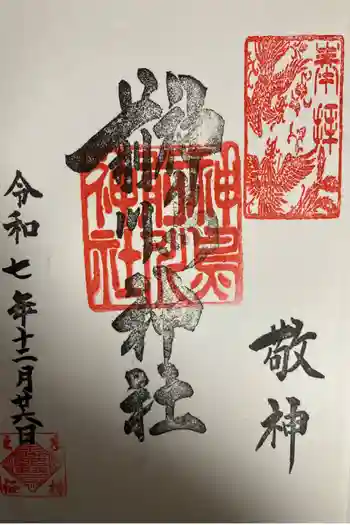 奉拝
敬神
神社
神鳥
前川
神社
令和七年十二月廿六日